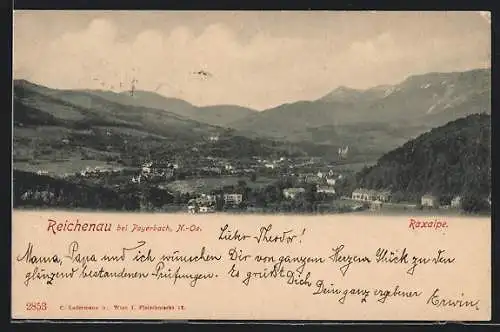 Reichenau bei Payerbach, N.-Oe.
Raxalpe.
Lieber Theodor!
Mama, Papa und ich wünschen Dir von ganzem Herzen Glück zu den
glänzend bestandenen Prüfungen. Es grüßt Dich
Dein ganz ergebener Erwin
2853
C. Ledermann jr., Wien I. Fleischmarkt 12.